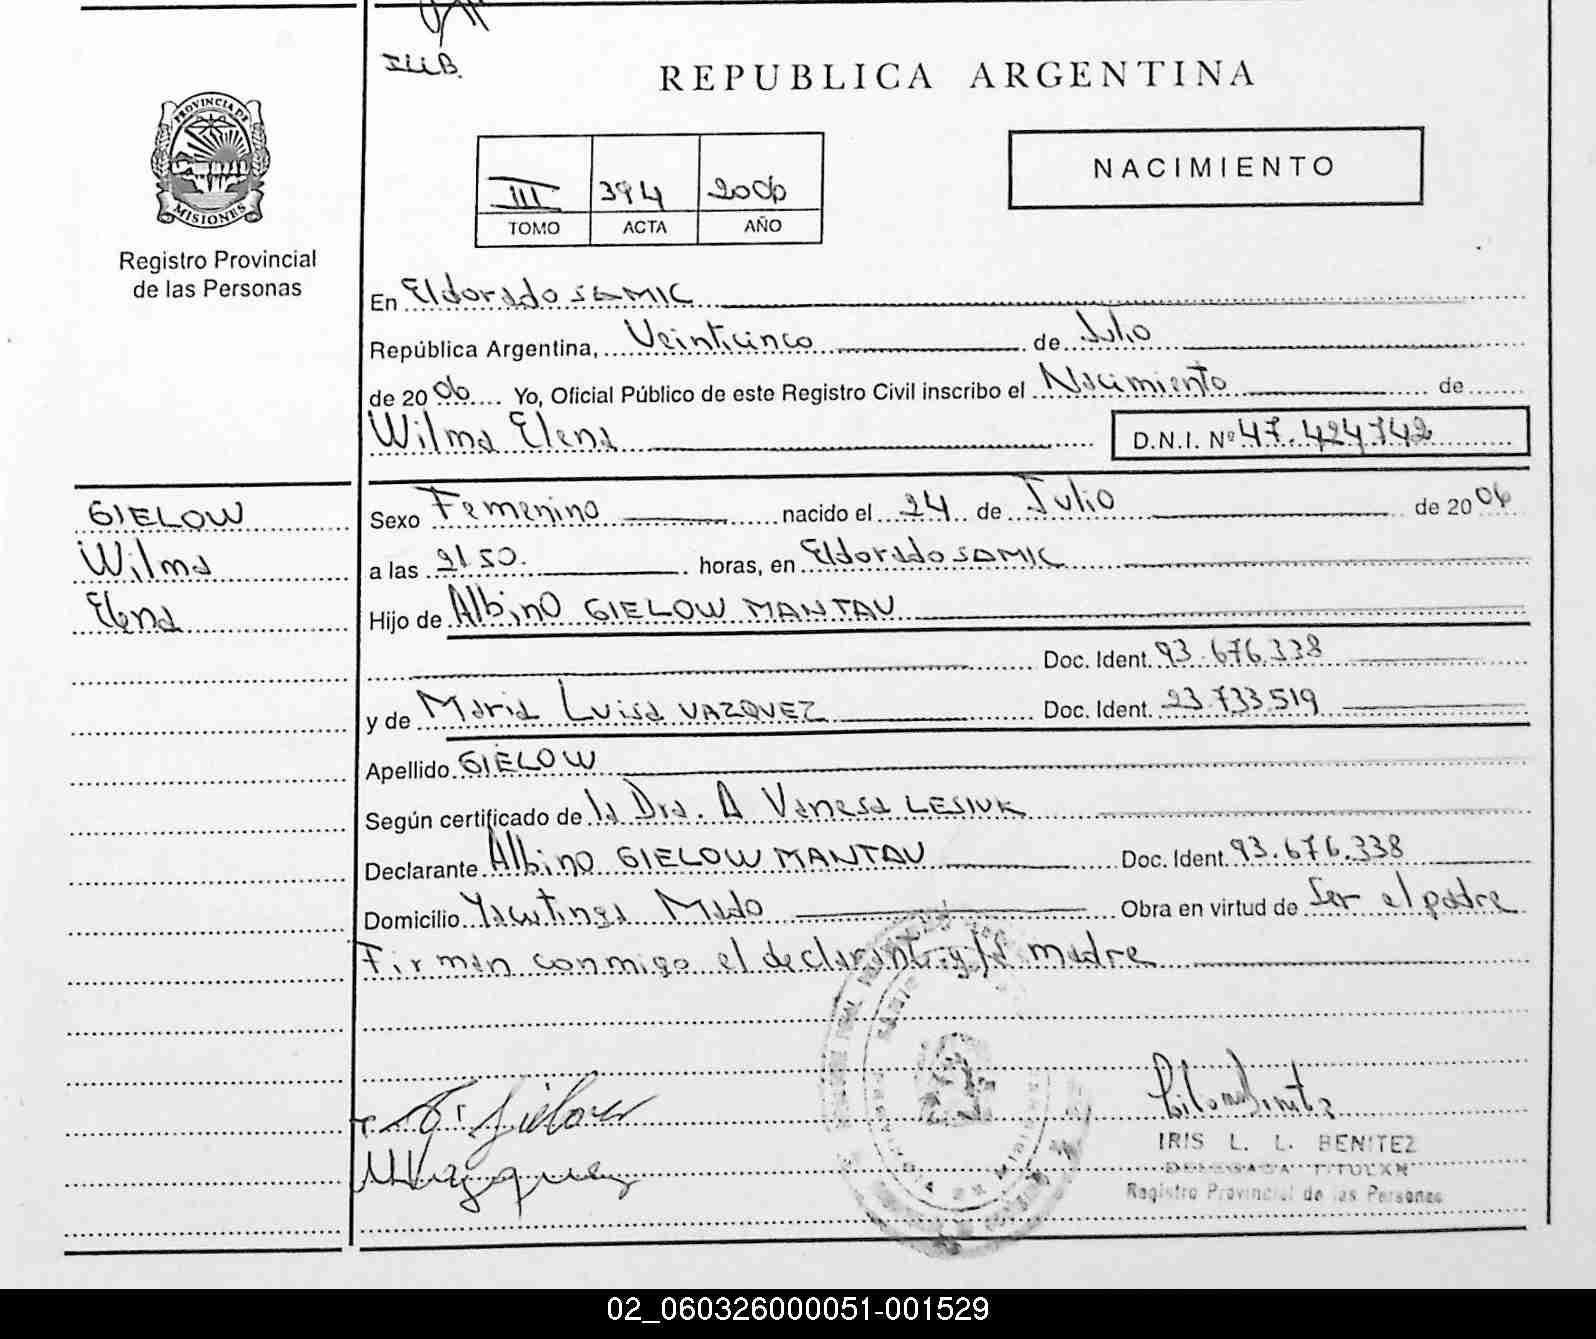 IllB.
REPUBLICA ARGENTINA
PROVINCIA DE
MISIONES
Registro Provincial
de las Personas
III 394 2006
TOMO ACTA AÑO
NACIMIENTO
En Eldorado SAMIC
República Argentina, Veinticinco de Julio
de 20 06 Yo, Oficial Público de este Registro Civil inscribo el Nacimiento de
Wilma Elena D.N.I. Nº 47.424742
GIELOW
Wilma
Elena
Sexo Femenino nacido el 24 de Julio de 20 06
a las 21 50. horas, en Eldorado SAMIC
Hijo de Albino GIELOW MANTAU
Doc. Ident. 93.676.338
y de Maria Luisa VAZQUEZ Doc. Ident. 23.733.519
Apellido GIELOW
Según certificado de la Dra. A Vanesa LESIUK
Declarante Albino GIELOW MANTAU Doc. Ident. 93.676.338
Domicilio Yacutinga Mado Obra en virtud de Ser el padre
Firman conmigo el declarante y la madre
IRIS L. L. BENITEZ
DELEGADA TITULAR
Registro Provincial de las Personas
02_060326000051-001529